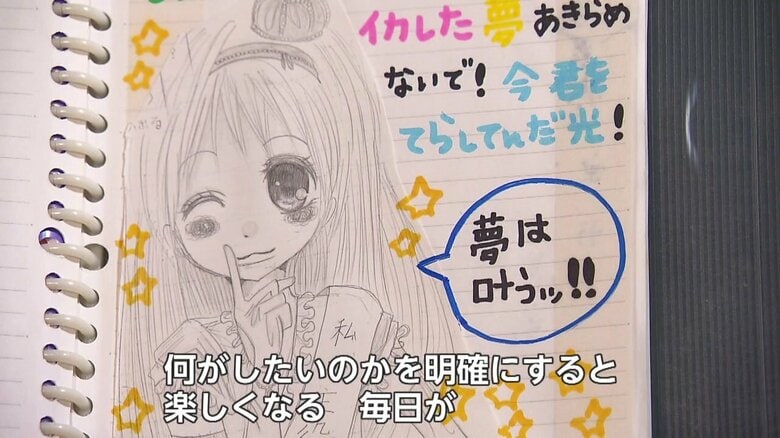 イカした夢あきらめ
ないで!今君を
てらしてんだ光!
夢は
叶うッ!!
私
何がしたいのかを明確にすると
楽しくなる 毎日が